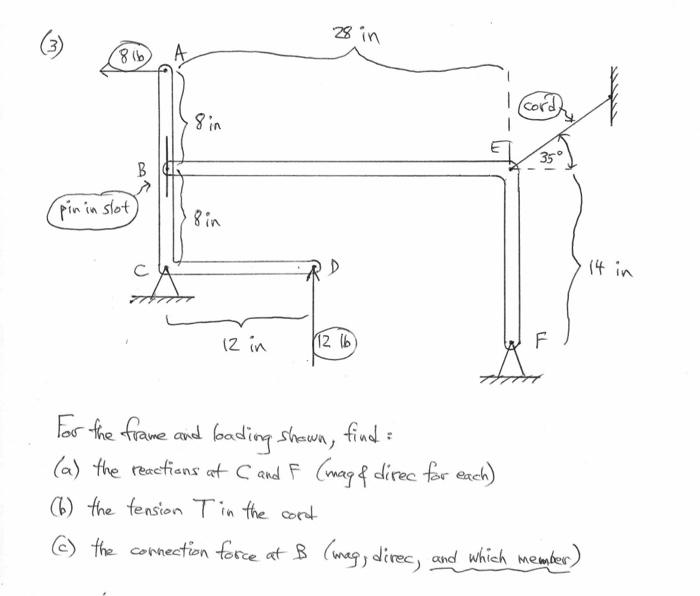 (3)
8 lb
A
28 in
8 in
cord
E
35°
B
pin in slot
8 in
C
D
14 in
12 in
12 lb
F
For the frame and loading shown, find :
(a) the reactions at C and F (mag & direc for each)
(b) the tension T in the cord
(c) the connection force at B (mag, direc, and which member)